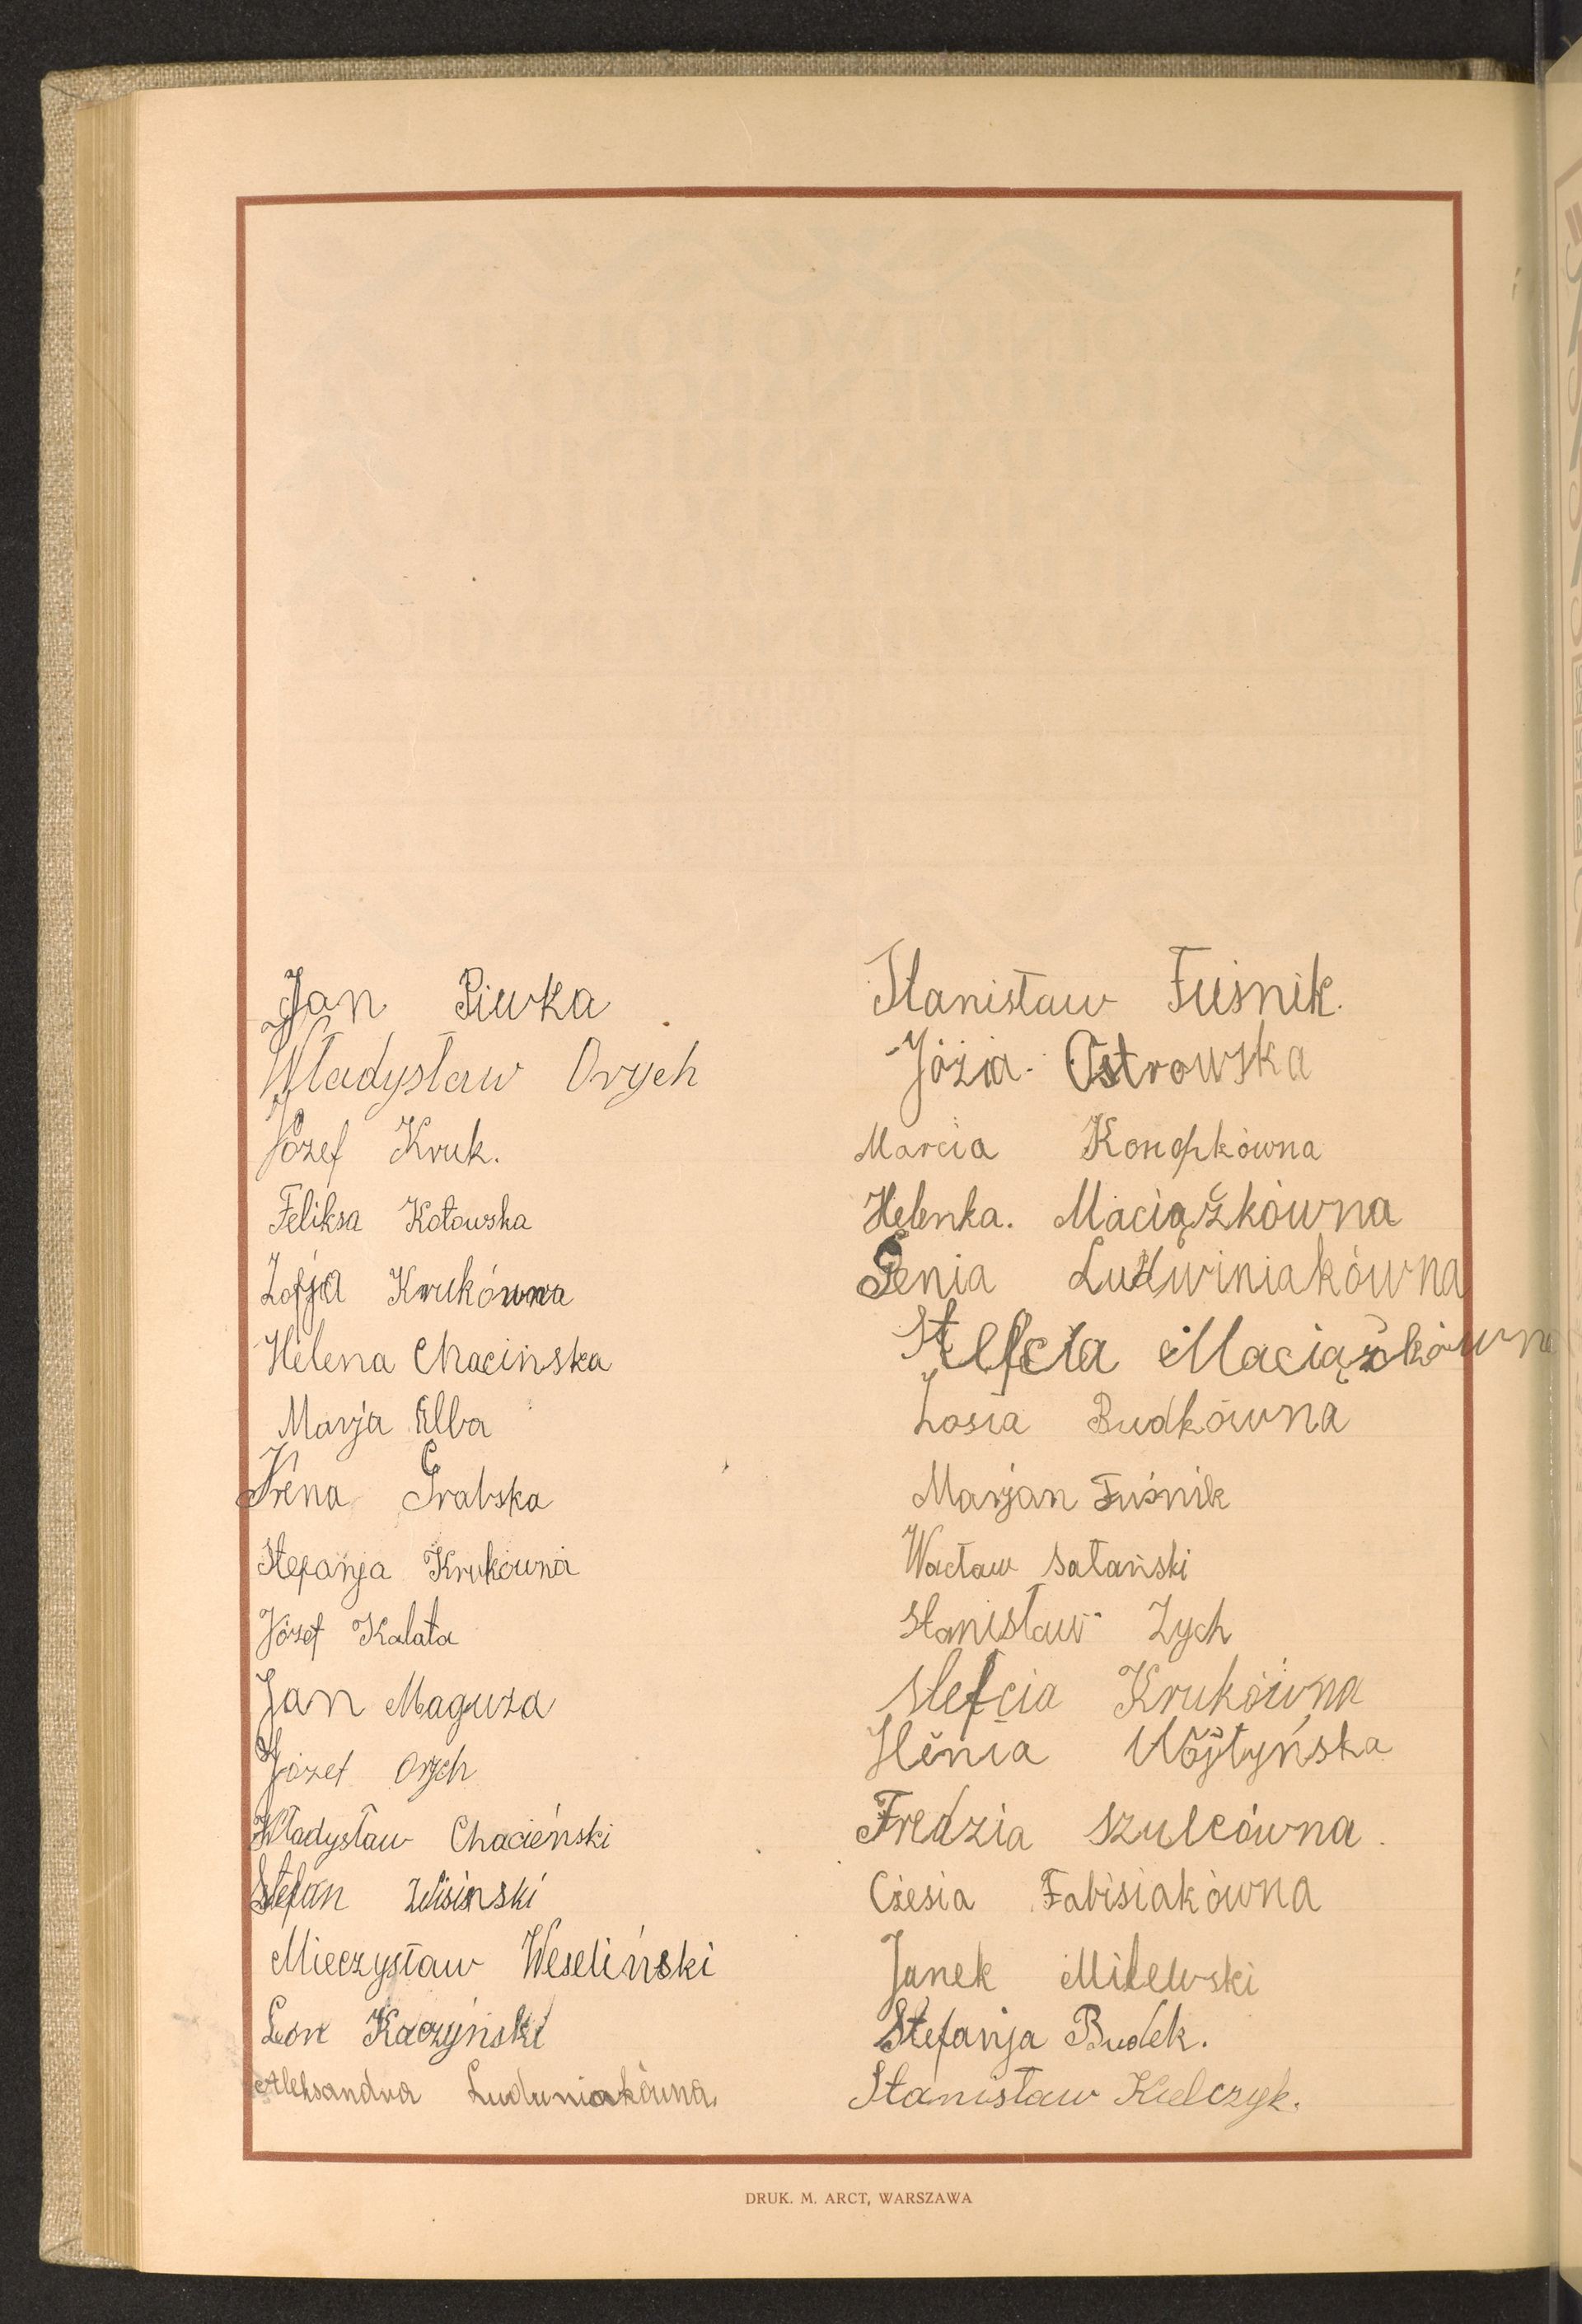 Jan Piwka
Władysław Orych
Józef Kruk.
Feliksa Kotowska
Zofja Krukówna
Helena Chacińska
Marja Elba
Irena Grabska
Stefanja Krukówna
Józef Kalata
Jan Maguza
Józef Orych
Władysław Chacieński
Stefan
Mieczysław Weseliński
Leon Kaczyński
Aleksandra Luduniakówna
Stanisław Fuśnik.
Józia Ostrowska
Marcia Konopkówna
Helenka. Maciążkówna
Genia Ludwiniakówna
Stefcia Maciążkówna
Zosia Budkówna
Marjan Fuśnik
Wacław Satański
Stanisław Zych
Stefcia Krukówna
Henia Wójtyńska
Fredzia Szulcówna.
Czesia Fabisiakówna
Janek Milewski
Stefanja Budek.
Stanisław Kielczyk.
DRUK. M. ARCT, WARSZAWA